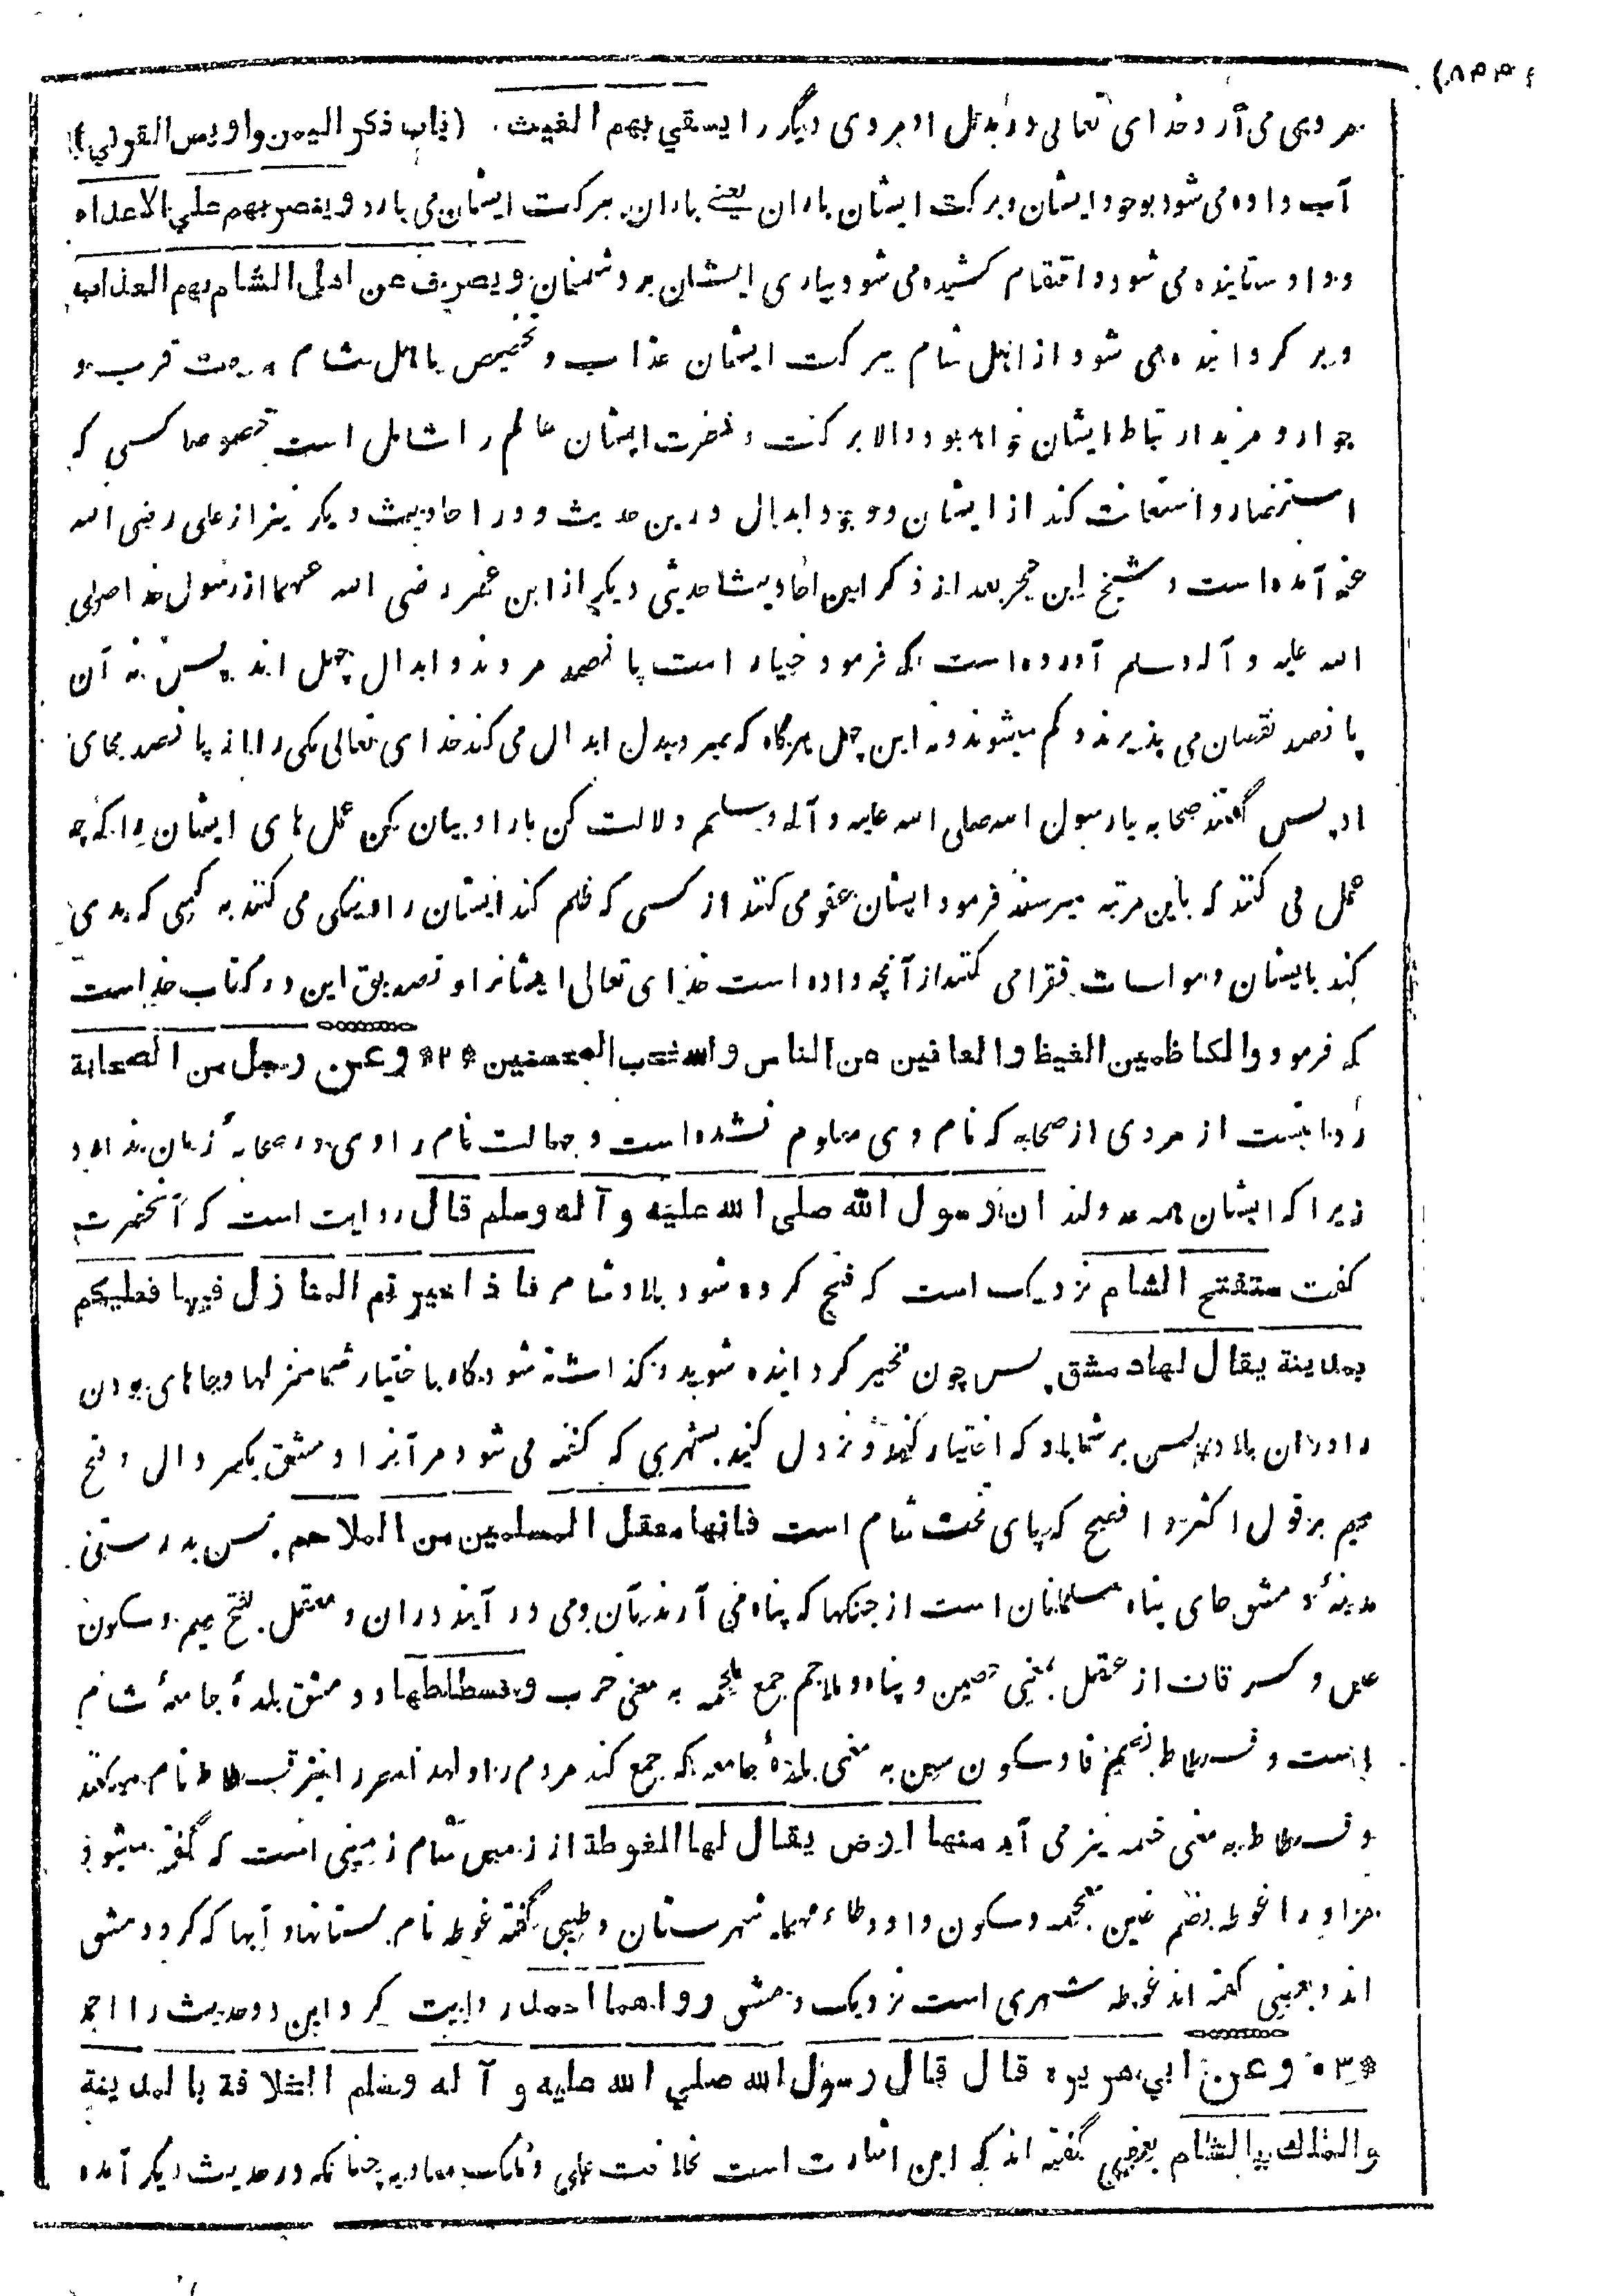 مردی می آرد خدای تعالی در بدل او مردی دیگر را یسقي بهم الغیث . (باب ذکر الیمن و اویس القرني)
آب داده می شود بوجود ایشان و برکت ایشان باران یعنے باران ببرکت ایشان می بارد و ینصر بهم علي الاعداء
و داد ستانیده می شود و انتقام کشیده می شود بیاری ایشان بر دشمنان و یصرف عن اهل الشام بهم العذاب
و بر گردانیده می شود از اهل شام ببرکت ایشان عذاب و تخصیص باهل شام بجهت قرب و
جوار و مزید ارتباط ایشان خواهد بود والا برکت و نصرت ایشان عالم را شامل است خصوصا کسی که
استنصار و استعانت کند از ایشان و وجود ابدال درین حدیث و در احادیث دیگر نیز از علی رضی الله
عنه آمده است و شیخ ابن حجر بعد از ذکر این احادیث حدیثی دیگر از ابن عمر رضی الله عنهما از رسول خدا صلی
الله علیه و آله وسلم آورده است که فرمود خیار است پانصد مردند و ابدال چهل اند پس نه آن
پانصد نقصان می پذیرند و کم میشوند و نه این چهل هرگاه که بمیرد بدل ابدال می کند خدای تعالی یکی را از پانصد بجای
او پس گفتند صحابه یا رسول الله صلی الله علیه و آله وسلم دلالت کن ما را و بیان کن عمل های ایشان را که چه
عمل می کنند که باین مرتبه میرسند فرمود ایشان عفو می کنند از کسی که ظلم کند ایشان را و نیکی می کنند به کسی که بدی
کند بایشان و مواسات فقرا می کنند از آنچه داده است خدای تعالی ایشانرا و تصدیق این در کتاب خداست
که فرمود والکاظمین الغیظ والعافین عن الناس والله یحب المحسنین * ۲ * وعن رجل من الصحابة
روایتست از مردی از صحابه که نام وی معلوم نشده است و جهالت نام راوی در صحابه زیان ندارد
زیرا که ایشان همه عدولند ان رسول الله صلی الله علیه و آله وسلم قال روایت است که آنحضرت
گفت ستفتح الشام نزدیک است که فتح کرده شود بلاد شام فاذا خیرتم المنازل فیها فعلیکم
بمدینة یقال لها دمشق پس چون مخیر گردانیده شوید و گذاشته شود کاه باختیار شما منزلها و جاهای بودن
را در ان بلاد پس بر شما باد که اختیار کنید و نزول کنید بشهری که گفته می شود مر آنرا دمشق بکسر دال و فتح
میم بر قول اکثر و افصح که پای تخت شام است فانها معقل المسلمین من الملاحم پس بدرستی
مدینهٔ دمشق جای پناه مسلمانان است از جنگها که پناه می آرند بآن و می در آیند در ان و معقل بفتح میم و سکون
عین و کسر قاف از عقل بمعنی حصین و پناه و ملاحم جمع ملحمه به معنی حرب و فسطاطها و دمشق بلدهٔ جامعهٔ شام
است و فسطاط بضم فا و سکون سین به معنی بلدهٔ جامعه که جمع کند مردم را و لهذا مصر را نیز فسطاط نام میکنند
و فسطاط به معنی خیمه نیز می آید منها ارض یقال لها الغوطة از زمین شام زمینی است که گفته میشود
مر او را غوطه بضم غین معجمه و سکون واو و طاء مهمله شهرستان و طیبی گفته غوطه نام بستانها و آبها که گرد دمشق
اند و بعضی گفته اند غوطه شهری است نزدیک دمشق رواهما احمد روایت کرد این دو حدیث را احمد
* ۳ * وعن ابي هریره قال قال رسول الله صلي الله علیه و آله وسلم الخلافة بالمدینة
والملك بالشام بعضی گفته اند که این اشارت است بخلافت علی و ملک معاویه چنانکه در حدیث دیگر آمده